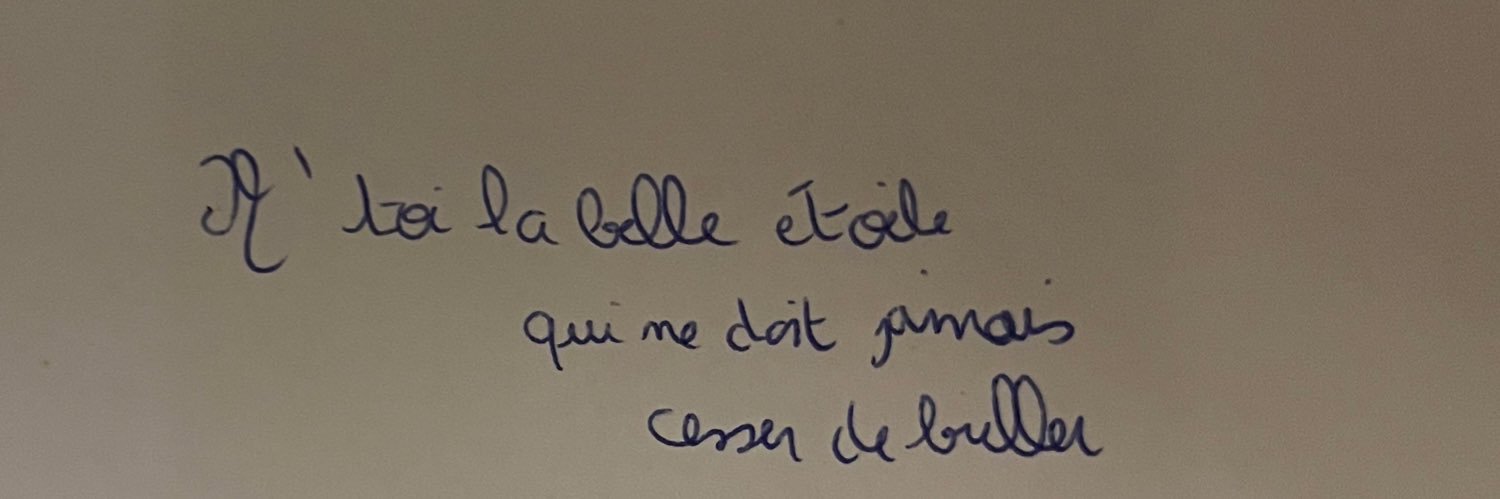 A' toi la belle étoile
qui ne doit jamais
cesser de briller